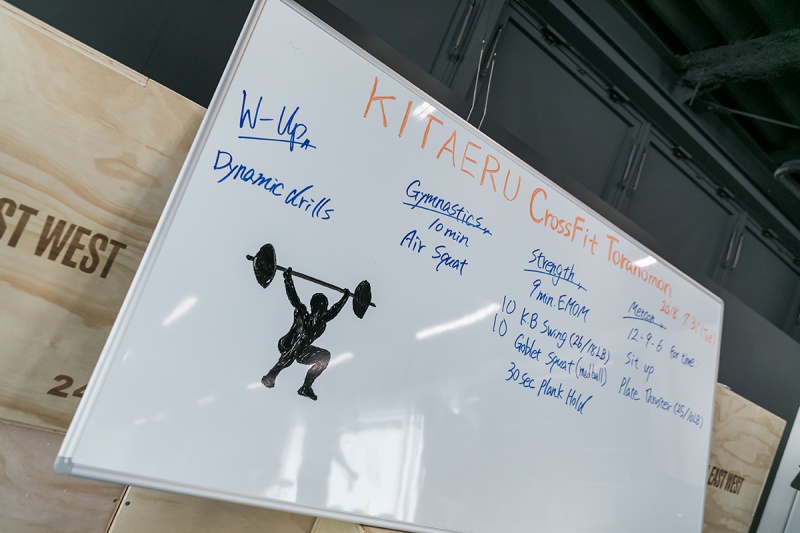 KITAERU CrossFit Toranomon
2018 7.31 (Tue)
W-Up
Dynamic drills
Gymnastics
10 min
Air Squat
Strength
9 min EMOM
10 KB Swing (26/18LB)
10 Goblet Squat (medball)
30 sec plank Hold
Metcon
12-9-6 For time
Sit up
Plate Thruster (25/15LB)
EAST WEST
24
EAST WEST